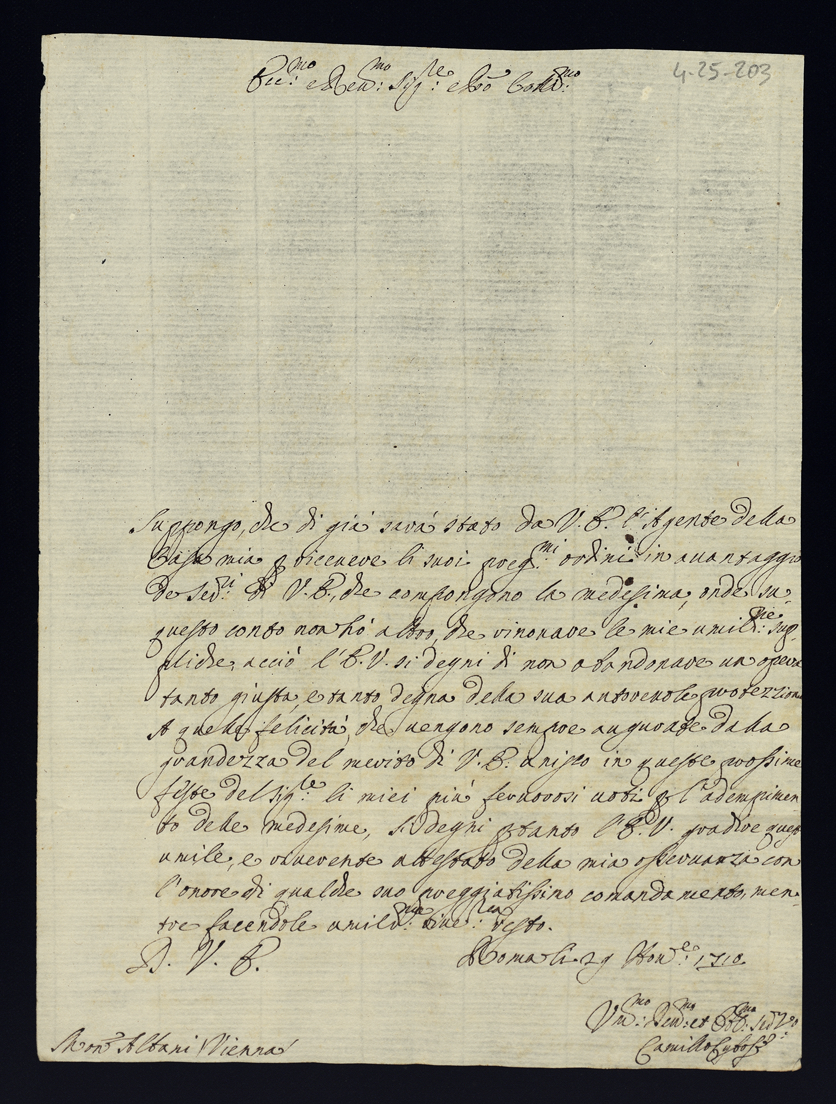 Ecc:mo e Rev:mo Sig:re e Pron Coll:mo
4-25-203
Suppongo, che di già sarà stato da V. E. l'Agente della
Casa mia p ricevere li suoi preg:mi ordini in avantaggio
de Sed:i di V. E., che compongono la medesima, onde su
questo conto non hò altro, che rinovare le mie umil:me sup-
pliche, acciò l'E. V. si degni di non abandonare un opera
tanto giusta, e tanto degna della sua autorevole protezzione
A quelle felicità, che vengono sempre augurate dalla
grandezza del merito di V. E. unisco in queste prossime
feste del Sig:re li miei più fervorosi voti p l'adempimen
to delle medesime, si degni p tanto l'E. V. gradire questo
umile, e riverente attestato della mia osservanza con
l'onore di qualche suo preggiatissimo comandamento, men-
tre facendole umil:ma rive:za resto.
D. V. E.
Roma li 29 Nov:e 1710
Um:mo Dev:mo et Obb:mo Ser:re
Mons:r Albani Vienna
Camillo Cybo